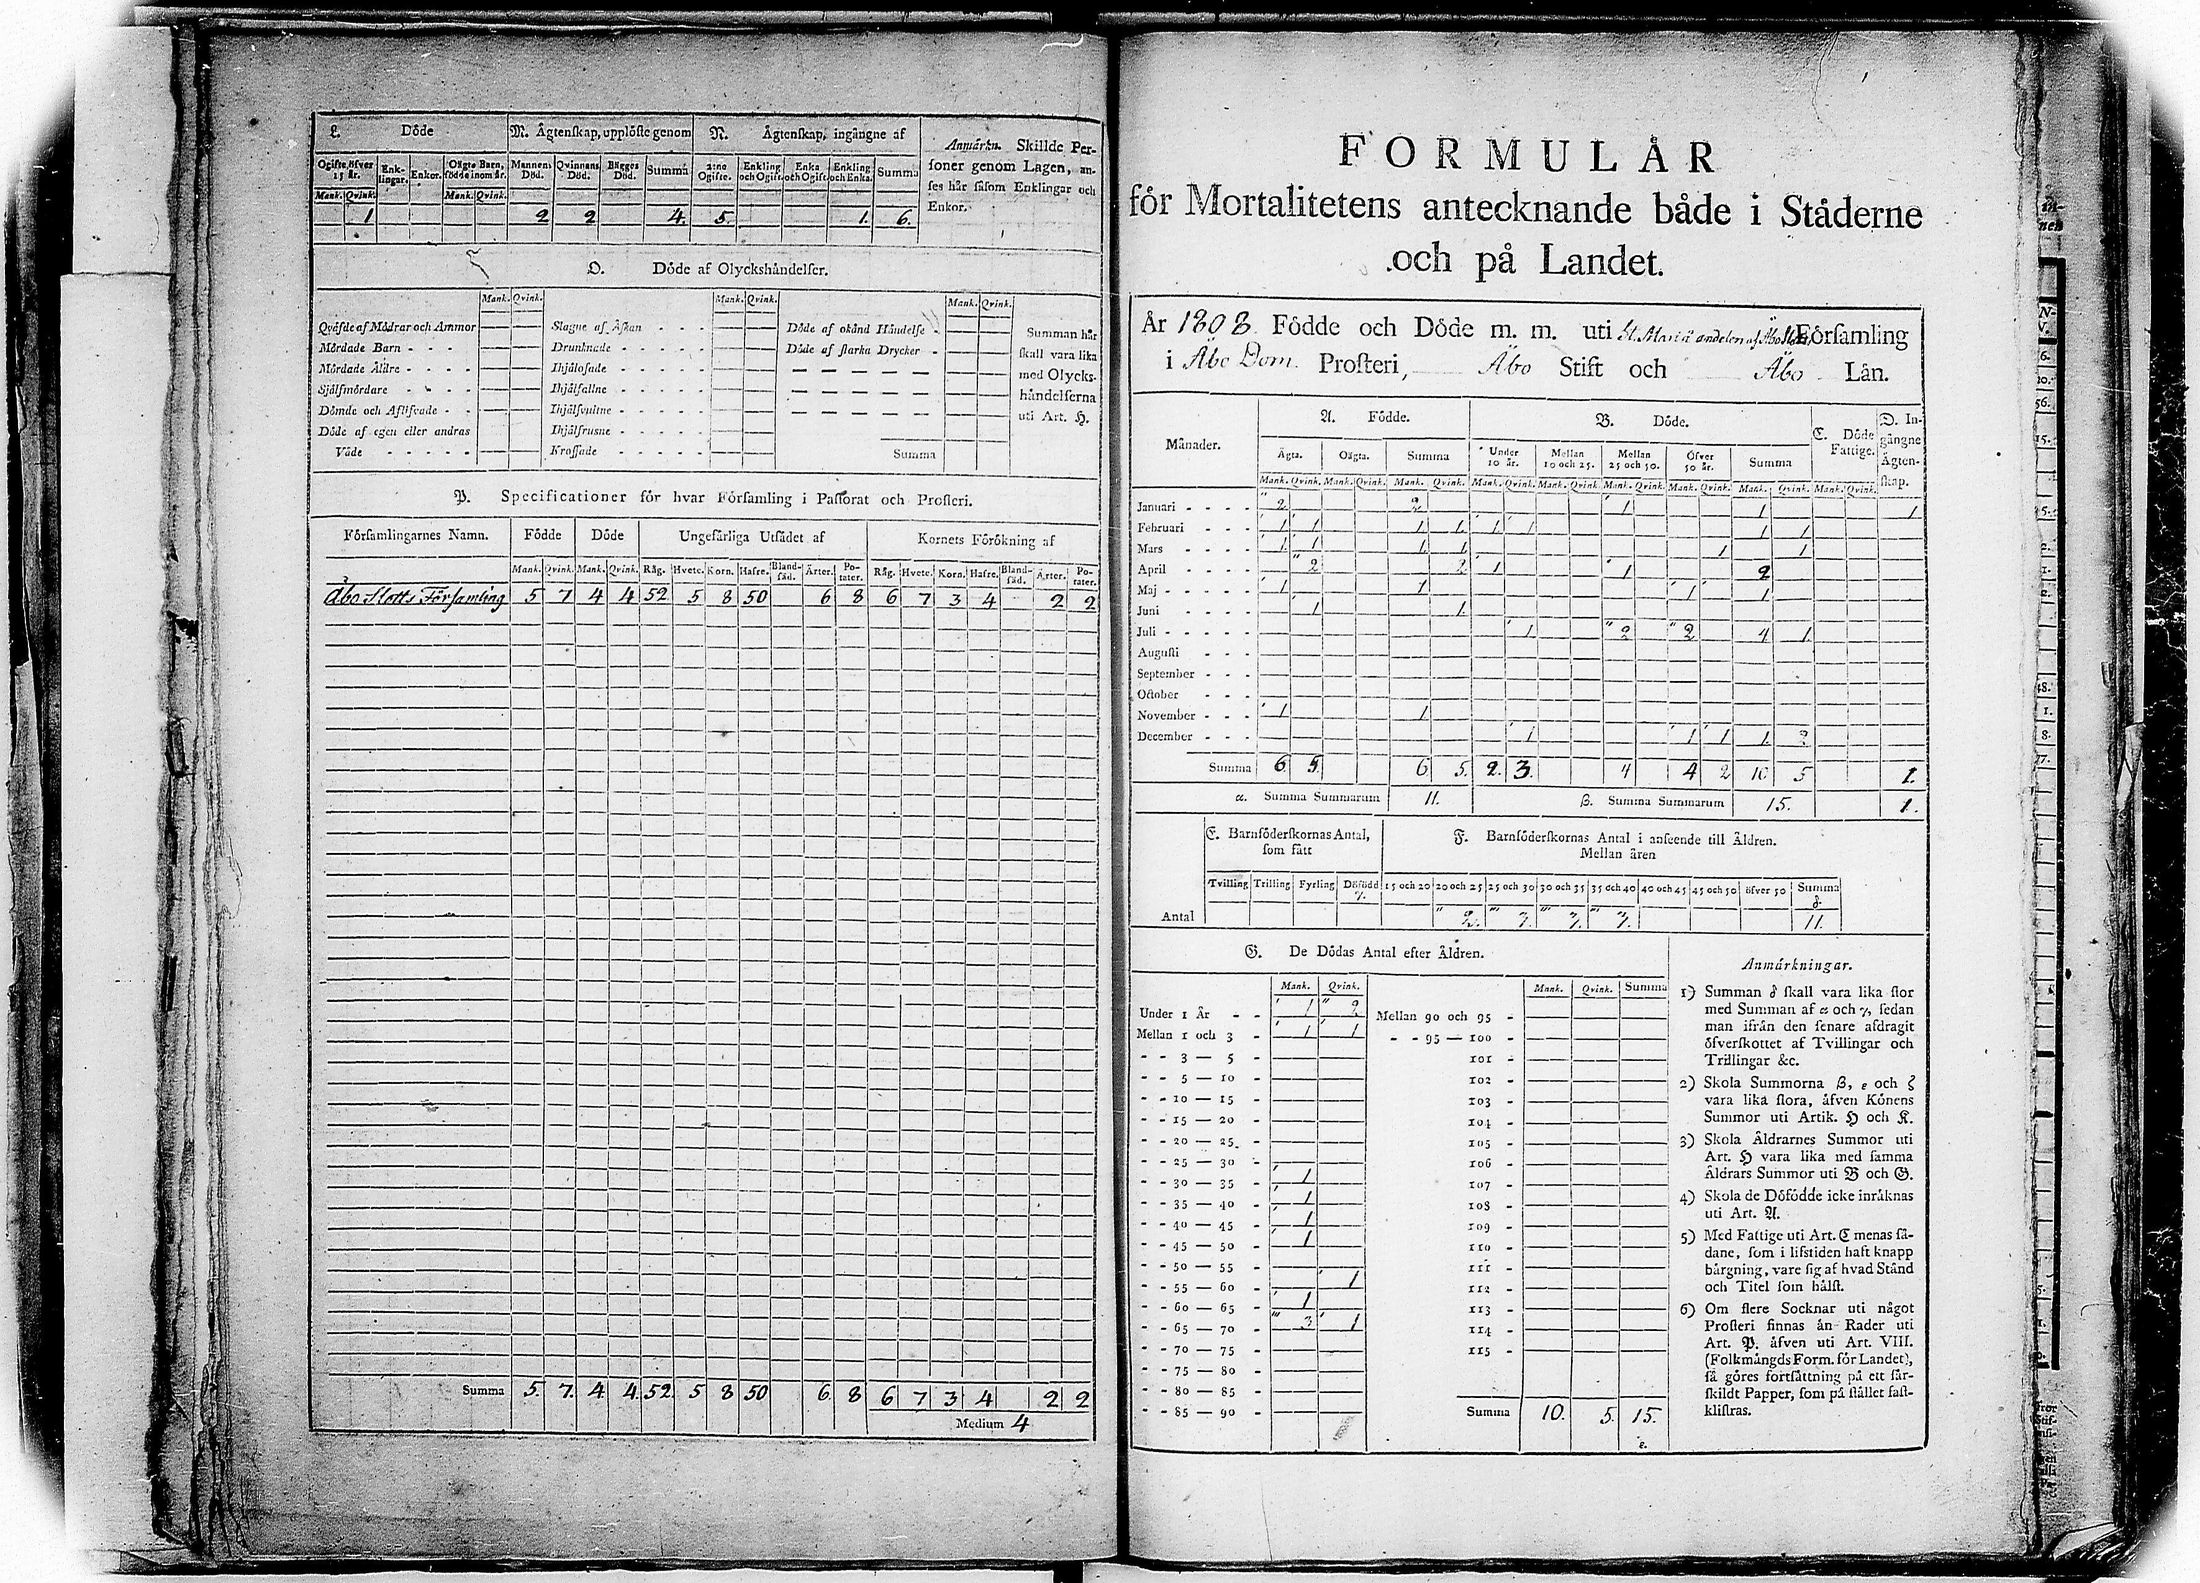 L. Döde
M. Ägtenskap, upplöste genom
N. Ägtenskap, ingångne af
Anmärkn. Skillde Per-
soner genom Lagen, an-
ses här såsom Enklingar och
Enkor.
Ogifte öfver 15 år. Enk-lingar. Enkor. Oägte Barn, födde inom år. Mannens Död. Qvinnans Död. Bägges Död. Summa 2:ne Ogifte. Enkling och Ogift. Enka och Ogift. Enkling och Enka. Summa
Mank. Qvink. Mank. Qvink.
1 2 2 4. 5 1. 6.
O. Döde af Olyckshändelser.
Mank. Qvink. Mank. Qvink. Mank. Qvink.
Qväfde af Mödrar och Ammor Slagne af Åskan - - - Döde af okänd Händelse - Summan här
Mördade Barn - - - Drunknade - - - - - Döde af starka Drycker - skall vara lika
Mördade Äldre - - - - Ihjälosade - - - - - med Olycks-
Sjelfmördare - - - - Ihjälfallne - - - - - händelserna
Dömde och Aflifvade - - Ihjälsvultne - - - - - uti Art. H.
Döde af egen eller andras Ihjälfrusne - - - - -
Våde - - - - - Krossade - - - - - Summa
P. Specificationer för hvar Församling i Pastorat och Prosteri.
Församlingarnes Namn. Födde Döde Ungefärliga Utsädet af Kornets Förökning af
Mank. Qvink. Mank. Qvink. Råg. Hvete. Korn. Hafre. Bland-säd. Ärter. Po-tater. Råg. Hvete. Korn. Hafre. Bland-säd. Ärter. Po-tater.
Åbo Slotts Församling 5 7 4 4 52 5 8 50 6 8 6 7 3 4 2 2
Summa 5. 7. 4 4. 52. 5 8 50 6. 8 6 7 3 4 2 2
Medium 4
FORMULÄR
för Mortalitetens antecknande både i Städerne
och på Landet.
År 1808 Födde och Döde m. m. uti St. Mariæ andelen af Åbo Församling
i Åbo Dom. Prosteri, Åbo Stift och Åbo Län.
Månader. A. Födde. B. Döde. C. Döde Fattige. D. In-gångne Ägten-skap.
Ägta. Oägta. Summa Under 10 år. Mellan 10 och 25. Mellan 25 och 50. Öfver 50 år. Summa
Mank. Qvink. Mank. Qvink. Mank. Qvink. Mank. Qvink. Mank. Qvink. Mank. Qvink. Mank. Qvink. Mank. Qvink. Mank. Qvink.
Januari - - - - 2 2 1 1 1
Februari - - - 1 1 1 1. 1 1 1 1
Mars - - - - 1. 1 1. 1. 1 1
April - - - - 2 2 1 1 2
Maj - - - - - 1 1 1 1
Juni - - - 1 1.
Juli - - - - - 1 2 2 4 1.
Augusti - - -
September - - -
October - - -
November - - - 1 1
December - - - 1 1 1 1. 2
Summa 6. 5. 6. 5. 2. 3. 4 4 2 10 5 1.
α. Summa Summarum 11. β. Summa Summarum 15. 1.
E. Barnföderskornas Antal,
som fått
F. Barnföderskornas Antal i anseende till Åldren.
Mellan åren
Tvilling Trilling Fyrling Döfödd γ. 15 och 20 20 och 25 25 och 30 30 och 35 35 och 40 40 och 45 45 och 50 öfver 50 Summa δ.
Antal 2. 3. 3. 3. 11.
G. De Dödas Antal efter Åldren.
Mank. Qvink. Mank. Qvink. Summa
Under 1 År - - 1 2 Mellan 90 och 95 -
Mellan 1 och 3 - 1 1 - - 95 — 100 -
- - 3 — 5 - 101 -
- - 5 — 10 - 102 -
- - 10 — 15 - 103 -
- - 15 — 20 - 104 -
- - 20 — 25 - 105 -
- - 25 — 30 - 106 -
- - 30 — 35 - 1 107 -
- - 35 — 40 - 1 108 -
- - 40 — 45 - 1 109 -
- - 45 — 50 - 1 110 -
- - 50 — 55 - 111 -
- - 55 — 60 - 1 112 -
- - 60 — 65 - 1 113 -
- - 65 — 70 - 3 1 114 -
- - 70 — 75 - 115 -
- - 75 — 80 -
- - 80 — 85 -
- - 85 — 90 - Summa 10. 5. 15.
ε.
Anmärkningar.
1) Summan δ skall vara lika stor
med Summan af α och γ, sedan
man ifrån den senare afdragit
öfverskottet af Tvillingar och
Trillingar &c.
2) Skola Summorna β, ε och ζ
vara lika stora, äfven Könens
Summor uti Artik. H och K.
3) Skola Åldrarnes Summor uti
Art. H vara lika med samma
Åldrars Summor uti B och G.
4) Skola de Döfödde icke inräknas
uti Art. A.
5) Med Fattige uti Art. C menas så-
dane, som i lifstiden haft knapp
bärgning, vare sig af hvad Stånd
och Titel som hälst.
6) Om flere Socknar uti något
Prosteri finnas än Rader uti
Art. P. äfven uti Art. VIII.
(Folkmängds Form. för Landet),
så göres fortsättning på ett sär-
skildt Papper, som på stället fast-
klistras.